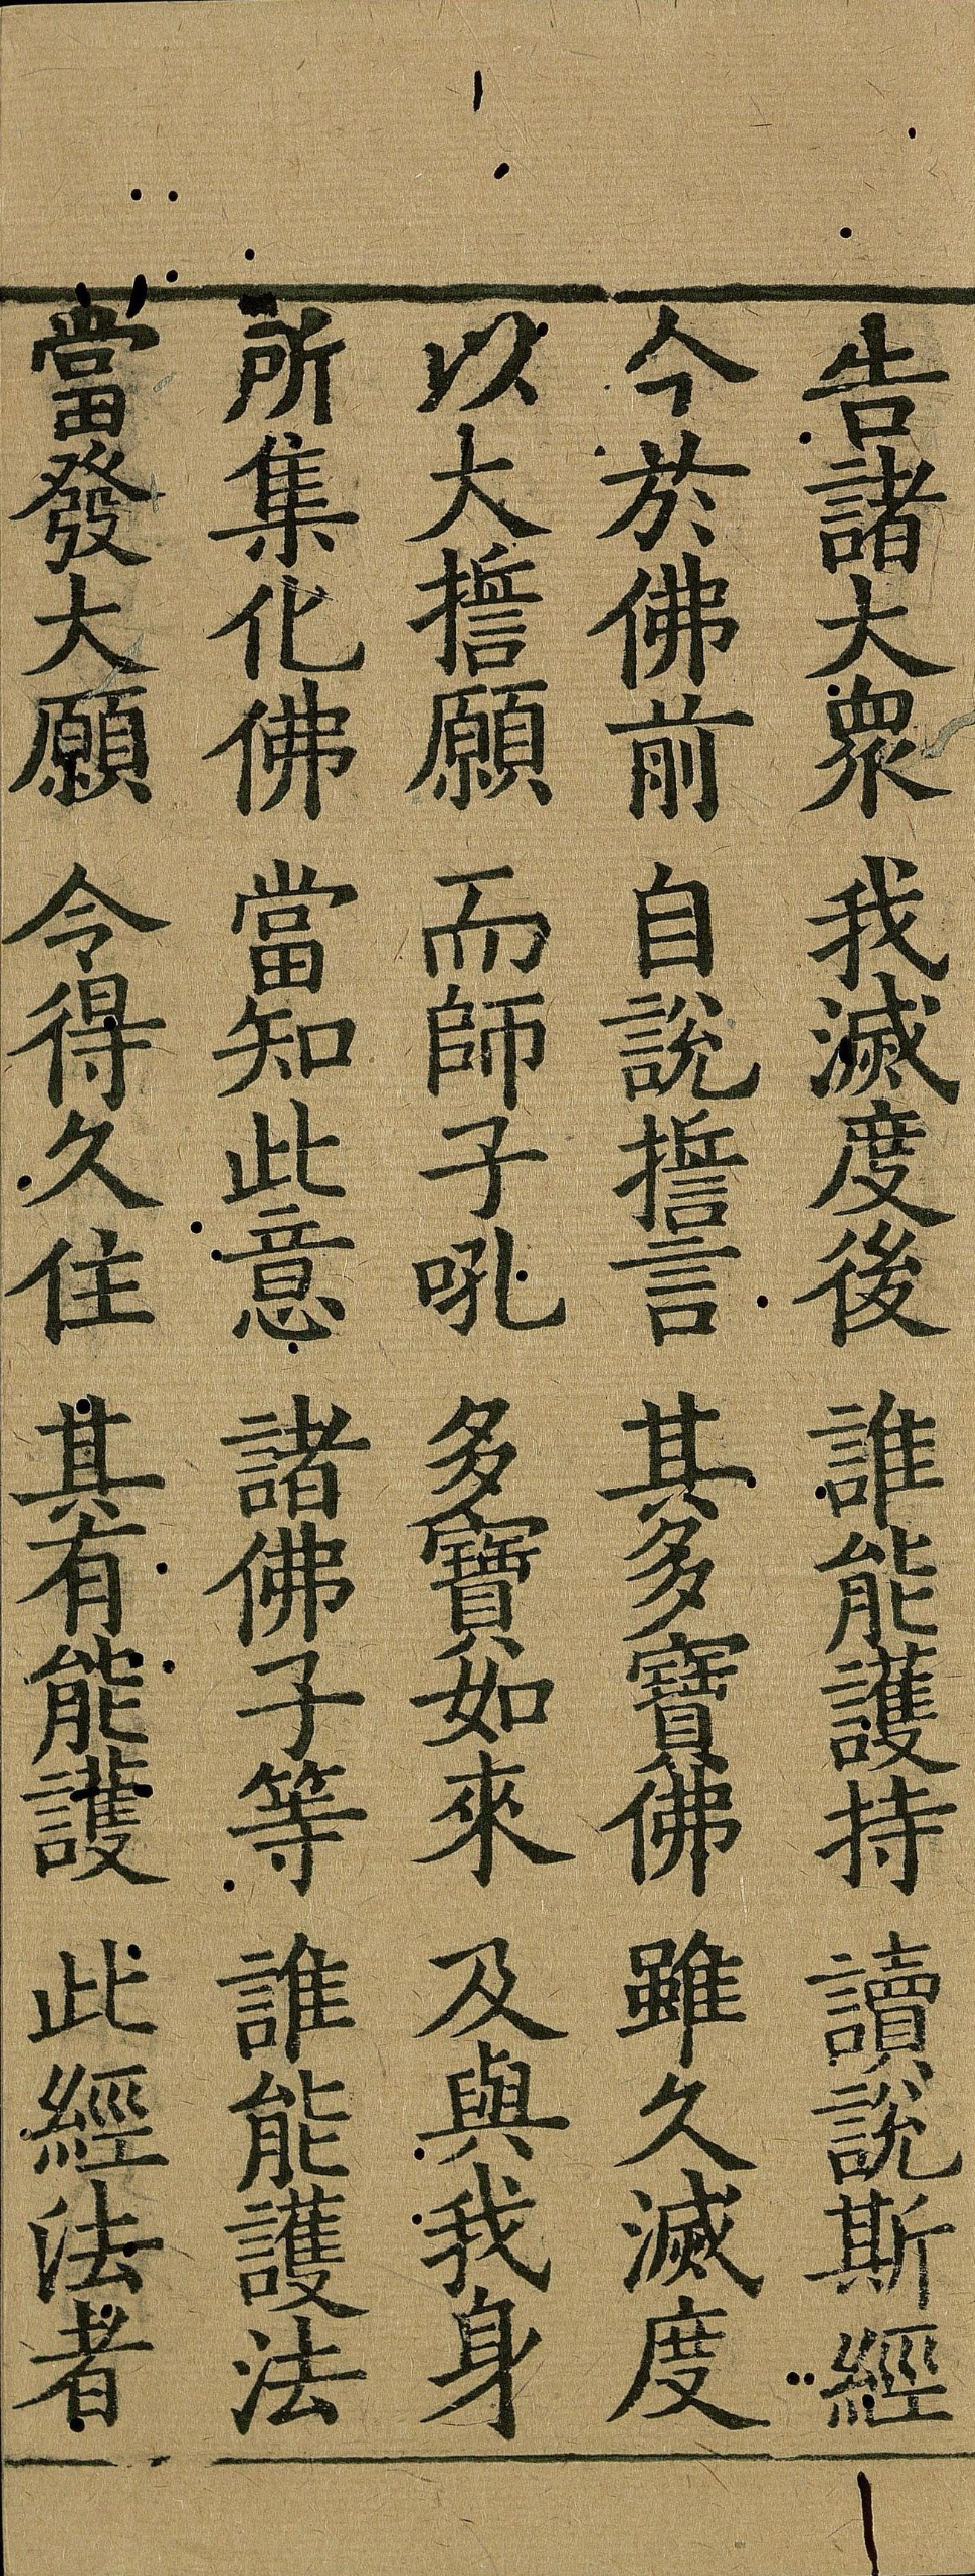 告諸大衆　我滅度後　誰能護持　讀說斯經
今於佛前　自說誓言　其多寶佛　雖久滅度
以大誓願　而師子吼　多寶如來　及與我身
所集化佛　當知此意　諸佛子等　誰能護法
當發大願　令得久住　其有能護　此經法者